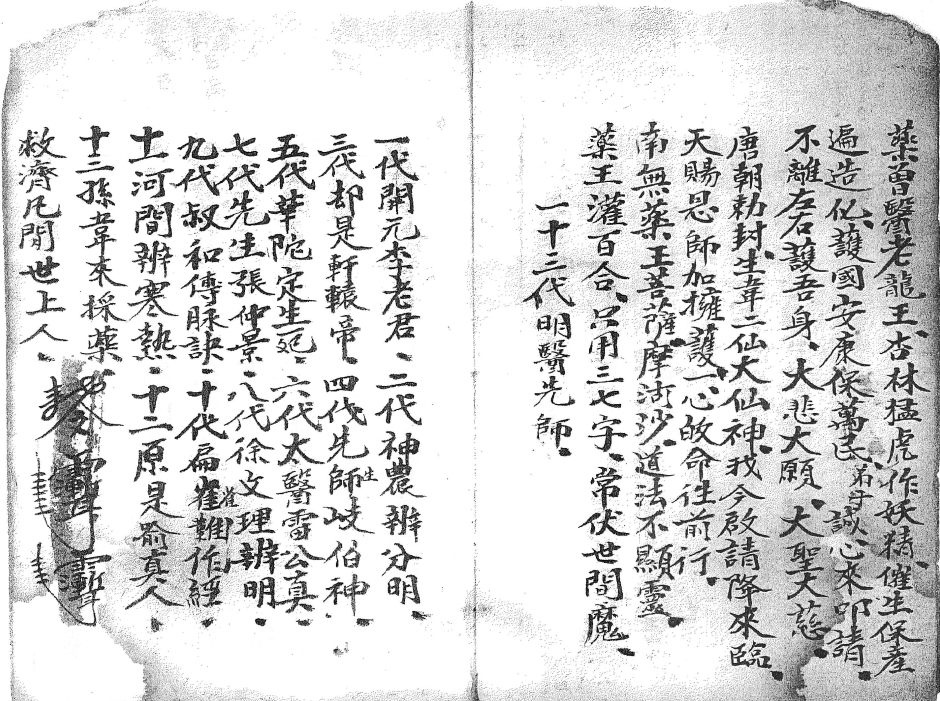 藥曽醫老龍王、杏林猛虎作妖精、催生保產
遍造化、護國安康保萬民、弟子誠心來叩請、
不離左右護吾身、大悲大願、大聖大慈、
唐朝勅封、生韋二仙大仙神、我今啟請降來臨、
天賜恩師加擁護、一心皈命往前行、
南無薬王菩薩、摩訶沙、道法不顯靈、
薬王灌百合、只用三七字、常伏世間魔、
一十三代明醫先師、
一代開元李老君、二代神農辨分明、
三代却是軒轅帝、四代先師岐伯神
五代華陀定生死、六代太醫雷公真、
七代先生張仲景、八代徐文理辨明
九代叔和傳脉訣、十代扁雀難作經
十一河間辨寒熱、十二原是喻真人
十三孫韋來採薬、
救濟凡間世上人、